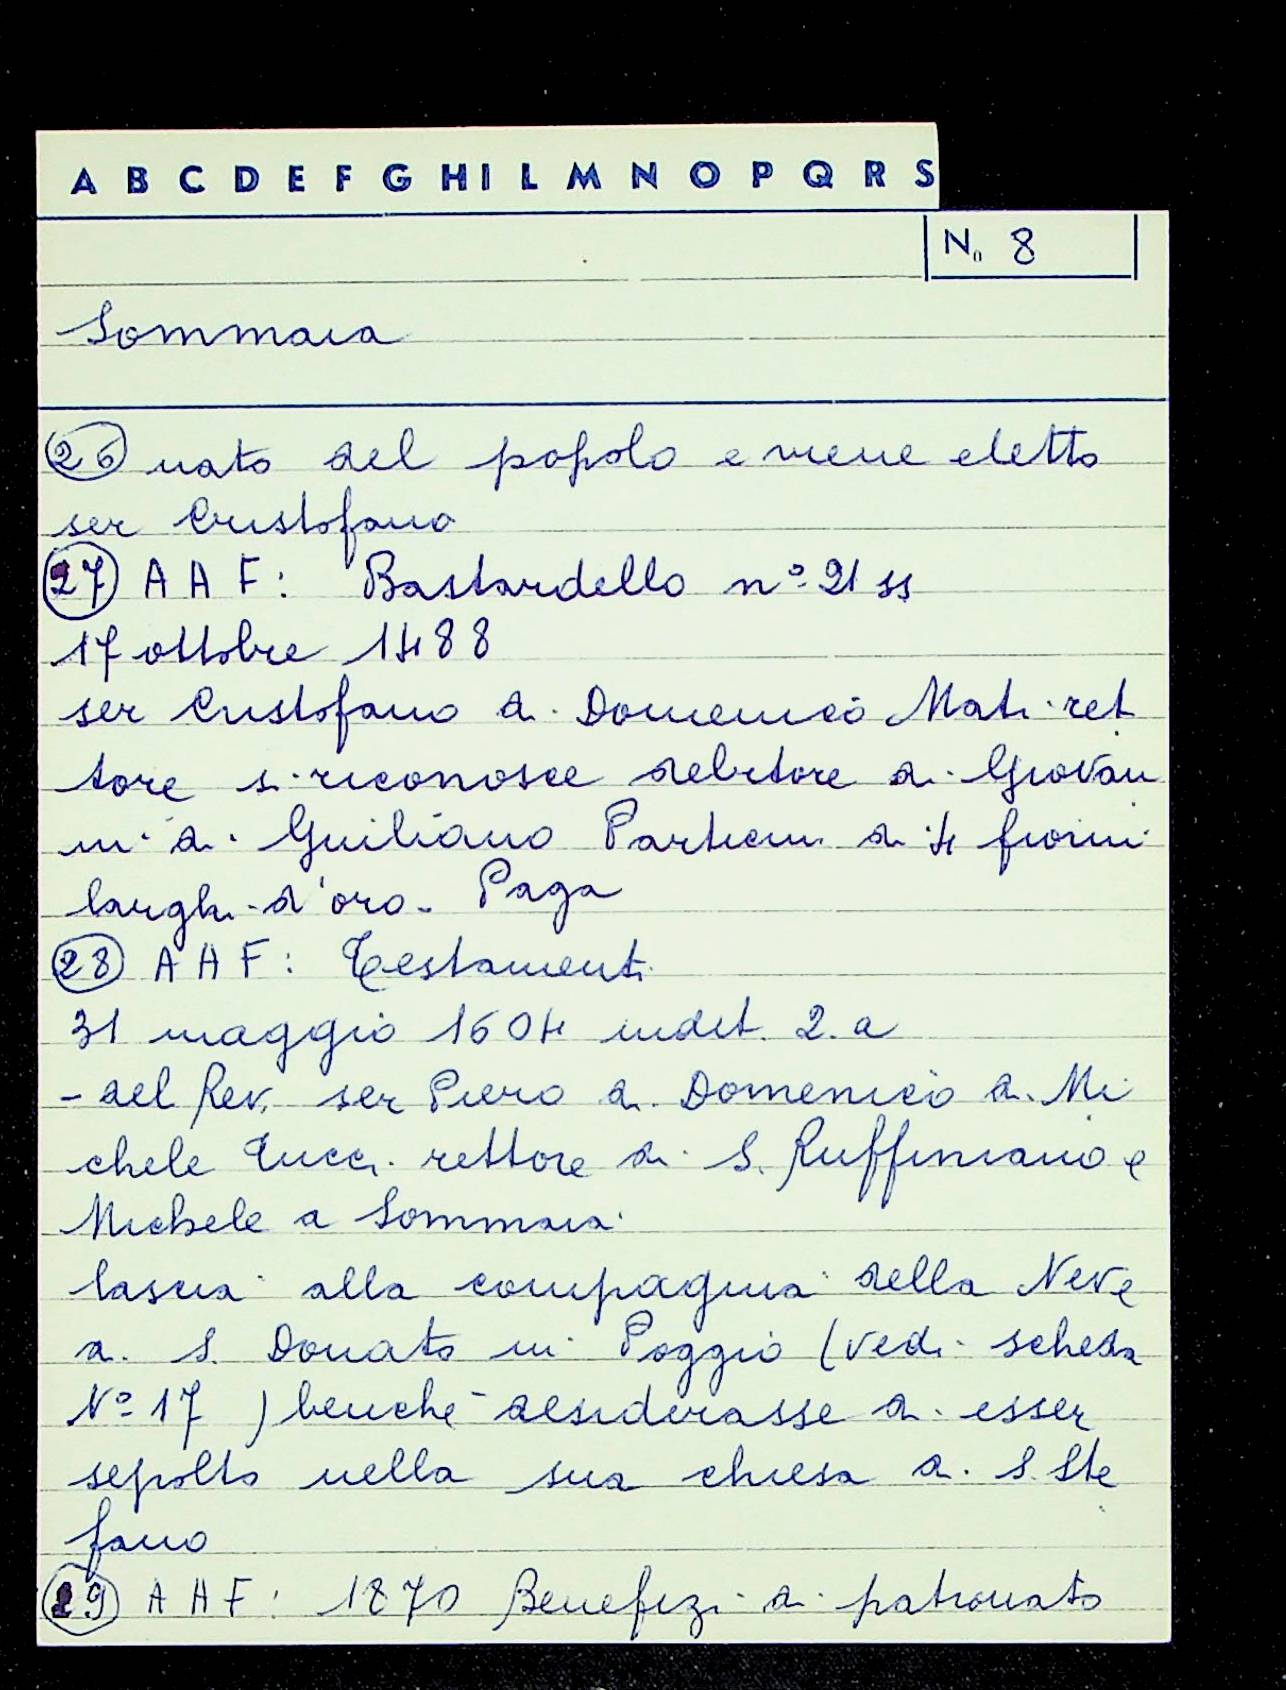 A B C D E F G H I L M N O P Q R S
N. 8
Sommaia
26 nato del popolo e viene eletto
ser Cristofano
27 A A F: Bastardello nº 21 ss
17 ottobre 1488
ser Cristofano di Domenico Mati ret
tore si riconosce debitore di Giovan
ni di Guiliano Particini di 4 fiorini
larghi d'oro. Paga
28 A A F: Testamenti
31 maggio 1604 indit. 2.a
- del Rev. ser Piero di Domenico di Mi
chele Tucci rettore di S. Ruffiniano e
Michele a Sommaia
lascia alla compagnia della Neve
di S. Donato in Poggio (vedi scheda
Nº 17 ) benché desiderasse di esser
sepolto nella sua chiesa di S. Ste
fano
29 A A F: 1870 Benefizi di patronato